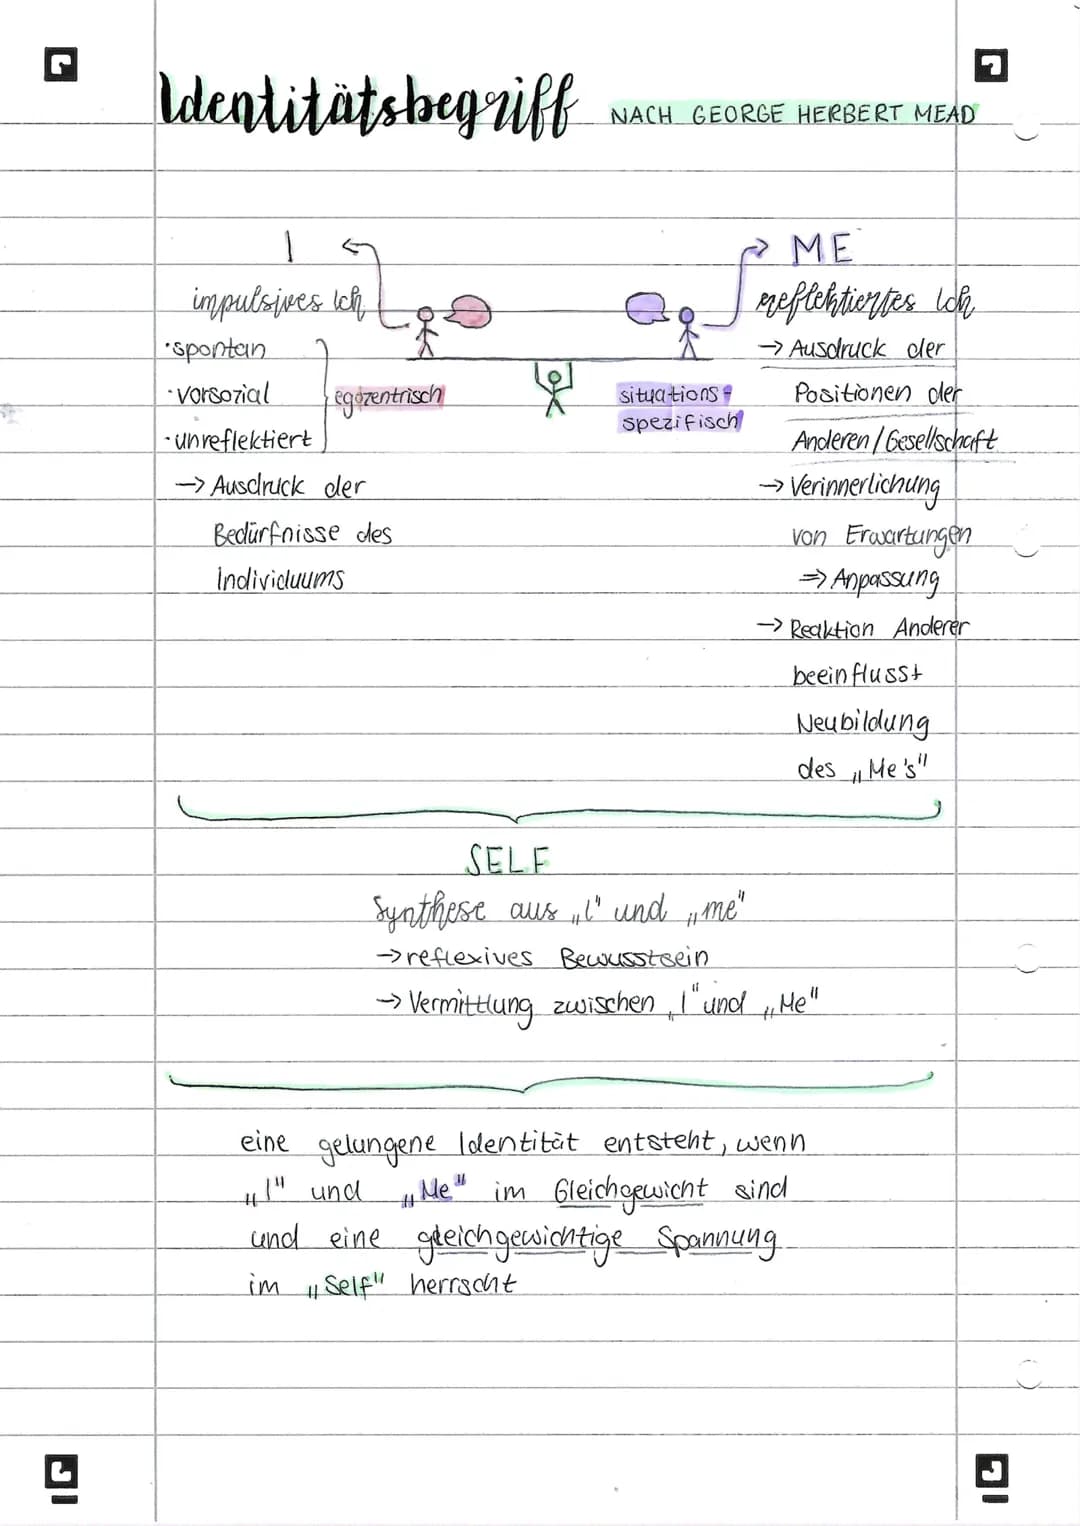 Identitätsbegriff NACH GEORGE HERBERT MEAD
I
impulsives Ich
· spontan
· vorsozial
· unreflektiert
egozentrisch
→ Ausdruck der
Bedürfnisse des
Individuums
ME
reflektiertes Ich
situations-
spezifisch
→ Ausdruck der
Positionen der
Anderen / Gesellschaft
→ Verinnerlichung
von Erwartungen
⇒ Anpassung
→ Reaktion Anderer
beeinflusst
Neubildung
des „Me's"
SELF
Synthese aus „I" und „me"
→ reflexives Bewusstsein
→ Vermittlung zwischen „I" und „Me"
eine gelungene Identität entsteht, wenn
„I" und „Me" im Gleichgewicht sind
und eine gleichgewichtige Spannung
im „Self" herrscht